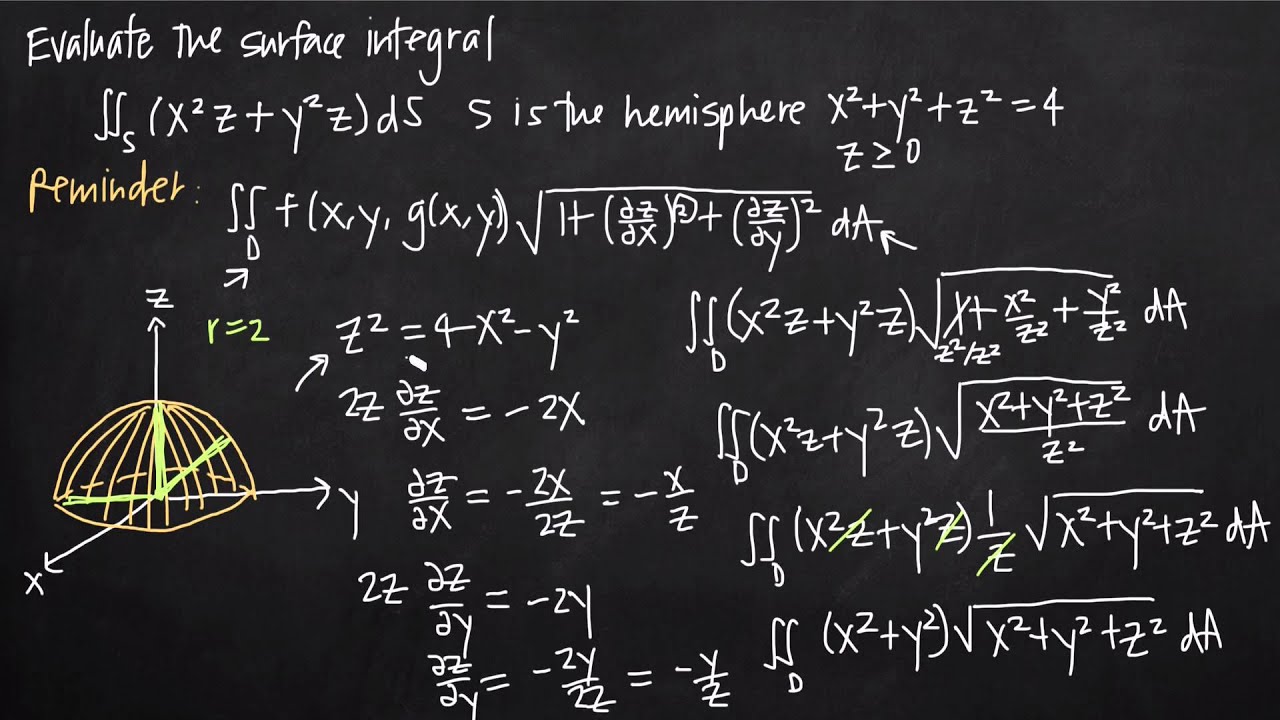 Evaluate the surface integral
∬_S (x²z + y²z) dS S is the hemisphere x² + y² + z² = 4
z ≥ 0
Reminder:
∬_D f(x, y, g(x, y)) √(1 + (∂z/∂x)² + (∂z/∂y)²) dA
z
r=2
y
x
z² = 4 - x² - y²
2z ∂z/∂x = -2x
∂z/∂x = -2x/2z = -x/z
2z ∂z/∂y = -2y
∂z/∂y = -2y/2z = -y/z
∬_D (x²z + y²z) √(1 + x²/z² + y²/z²) dA
z²/z²
∬_D (x²z + y²z) √((x² + y² + z²)/z²) dA
∬_D (x²z + y²z) 1/z √(x² + y² + z²) dA
∬_D (x² + y²) √(x² + y² + z²) dA